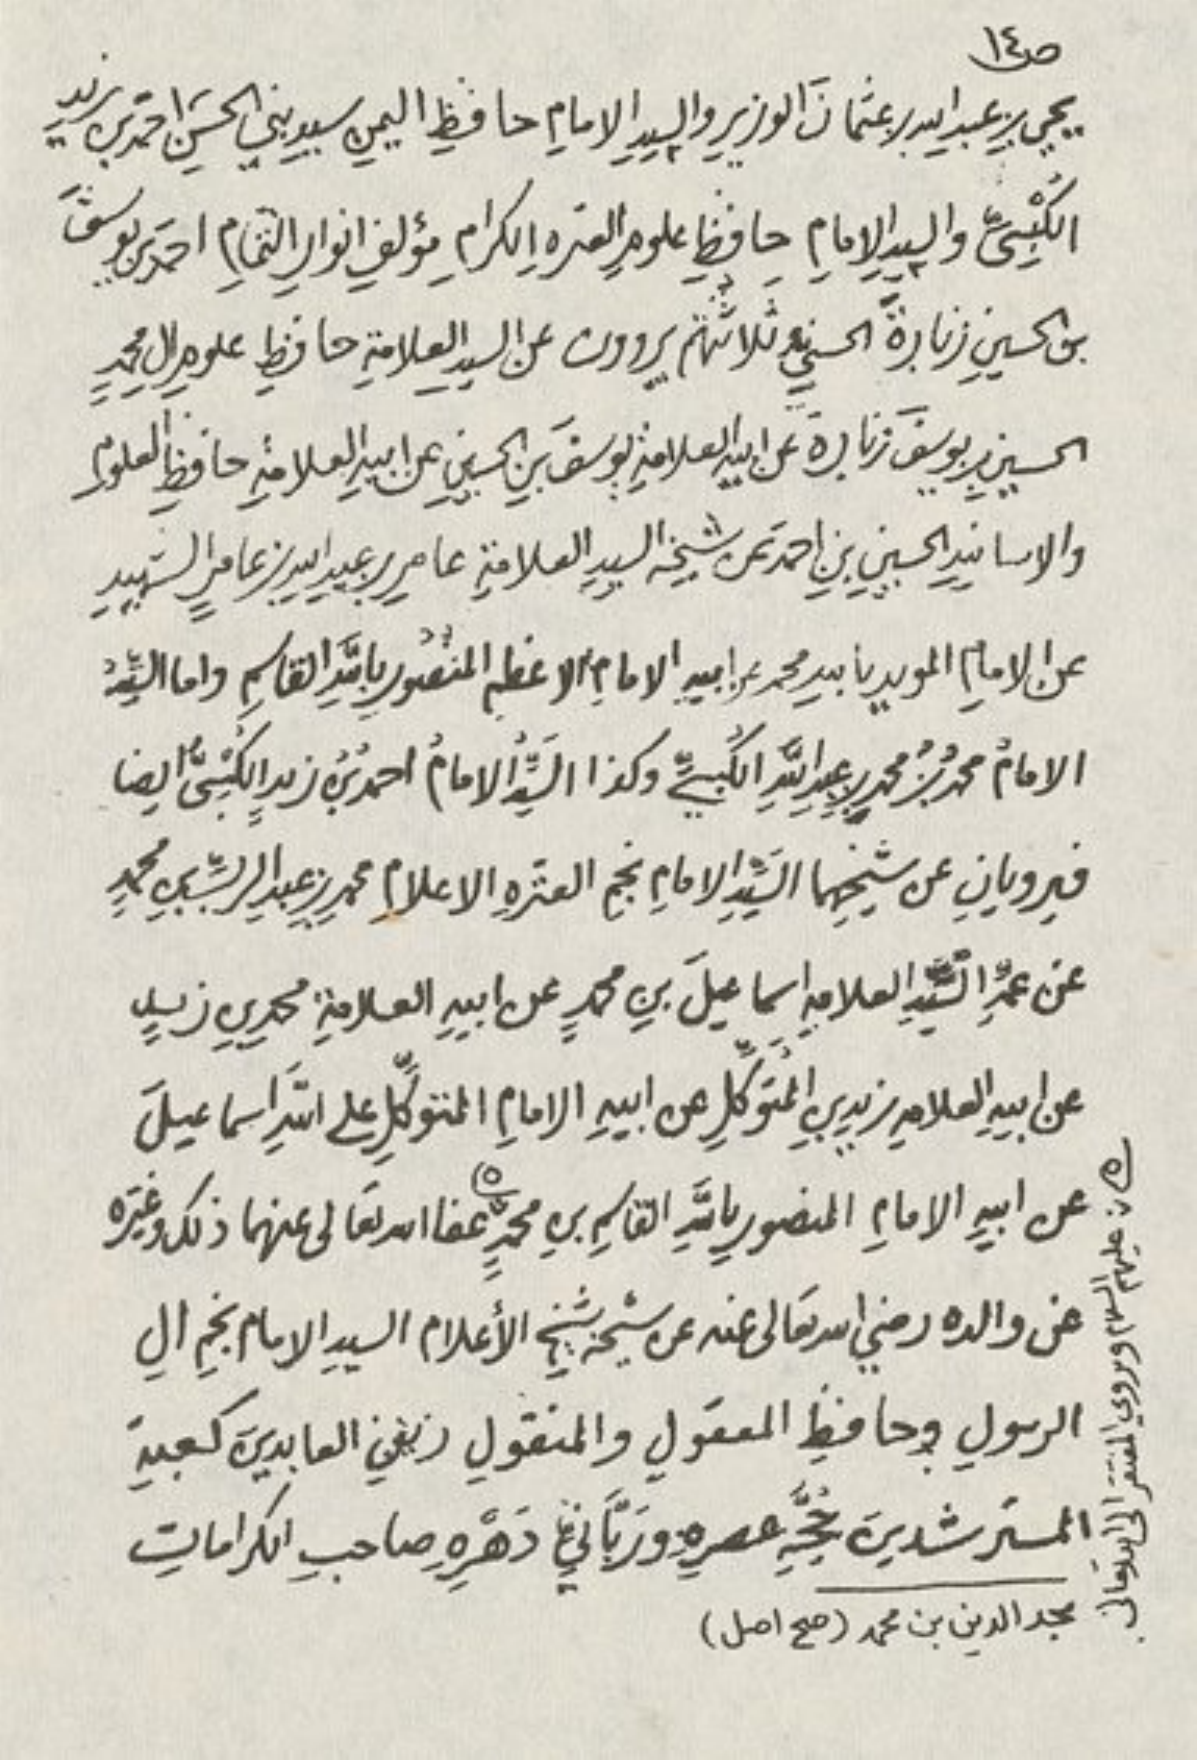 ص١٤
يحيى بن عبدالله بن عثمان الوزير والسيد الامام حافظ اليمن سيد بني الحسن احمد بن زيد
الكبسي والسيد الامام حافظ علوم العتره الكرام مؤلف انوار التمام احمد بن يوسف
بن الحسين زبارة الحسني ثلاثتهم يروون عن السيد العلامة حافظ علوم ال محمد
الحسين بن يوسف زبارة عن ابيه العلامة يوسف بن الحسين عن ابيه العلامة حافظ العلوم
والاسانيد الحسين بن احمد عن شيخه السيد العلامة عامر بن عبدالله بن عامر الشهيد
عن الامام المويد بالله محمد عن ابيه الامام الاعظم المنصور بالله القاسم واما السيد
الامام محمد بن محمد بن عبدالله الكبسي وكذا السيد الامام احمد بن زيد الكبسي ايضا
فيرويان عن شيخهما السيد الامام نجم العتره الاعلام محمد بن عبد الرب بن محمد
عن عمه السيد العلامه اسماعيل بن محمد عن ابيه العلامة محمد بن زيد
عن ابيه العلامه زيد بن المتوكل عن ابيه الامام المتوكل على الله اسماعيل
عن ابيه الامام المنصور بالله القاسم بن محمد (٥) عفا الله تعالى عنهما ذلك وغيره
عن والده رضي الله تعالى عنه عن شيخه شيخ الأعلام السيد الامام نجم ال
الرسول وحافظ المعقول والمنقول زين العابدين كعبة
المسترشدين حجة عصره ورباني دهره صاحب الكرامات
(٥) عليهم السلام ويروي المفتقر الى الله تعالى
مجد الدين بن محمد (صح اصل)